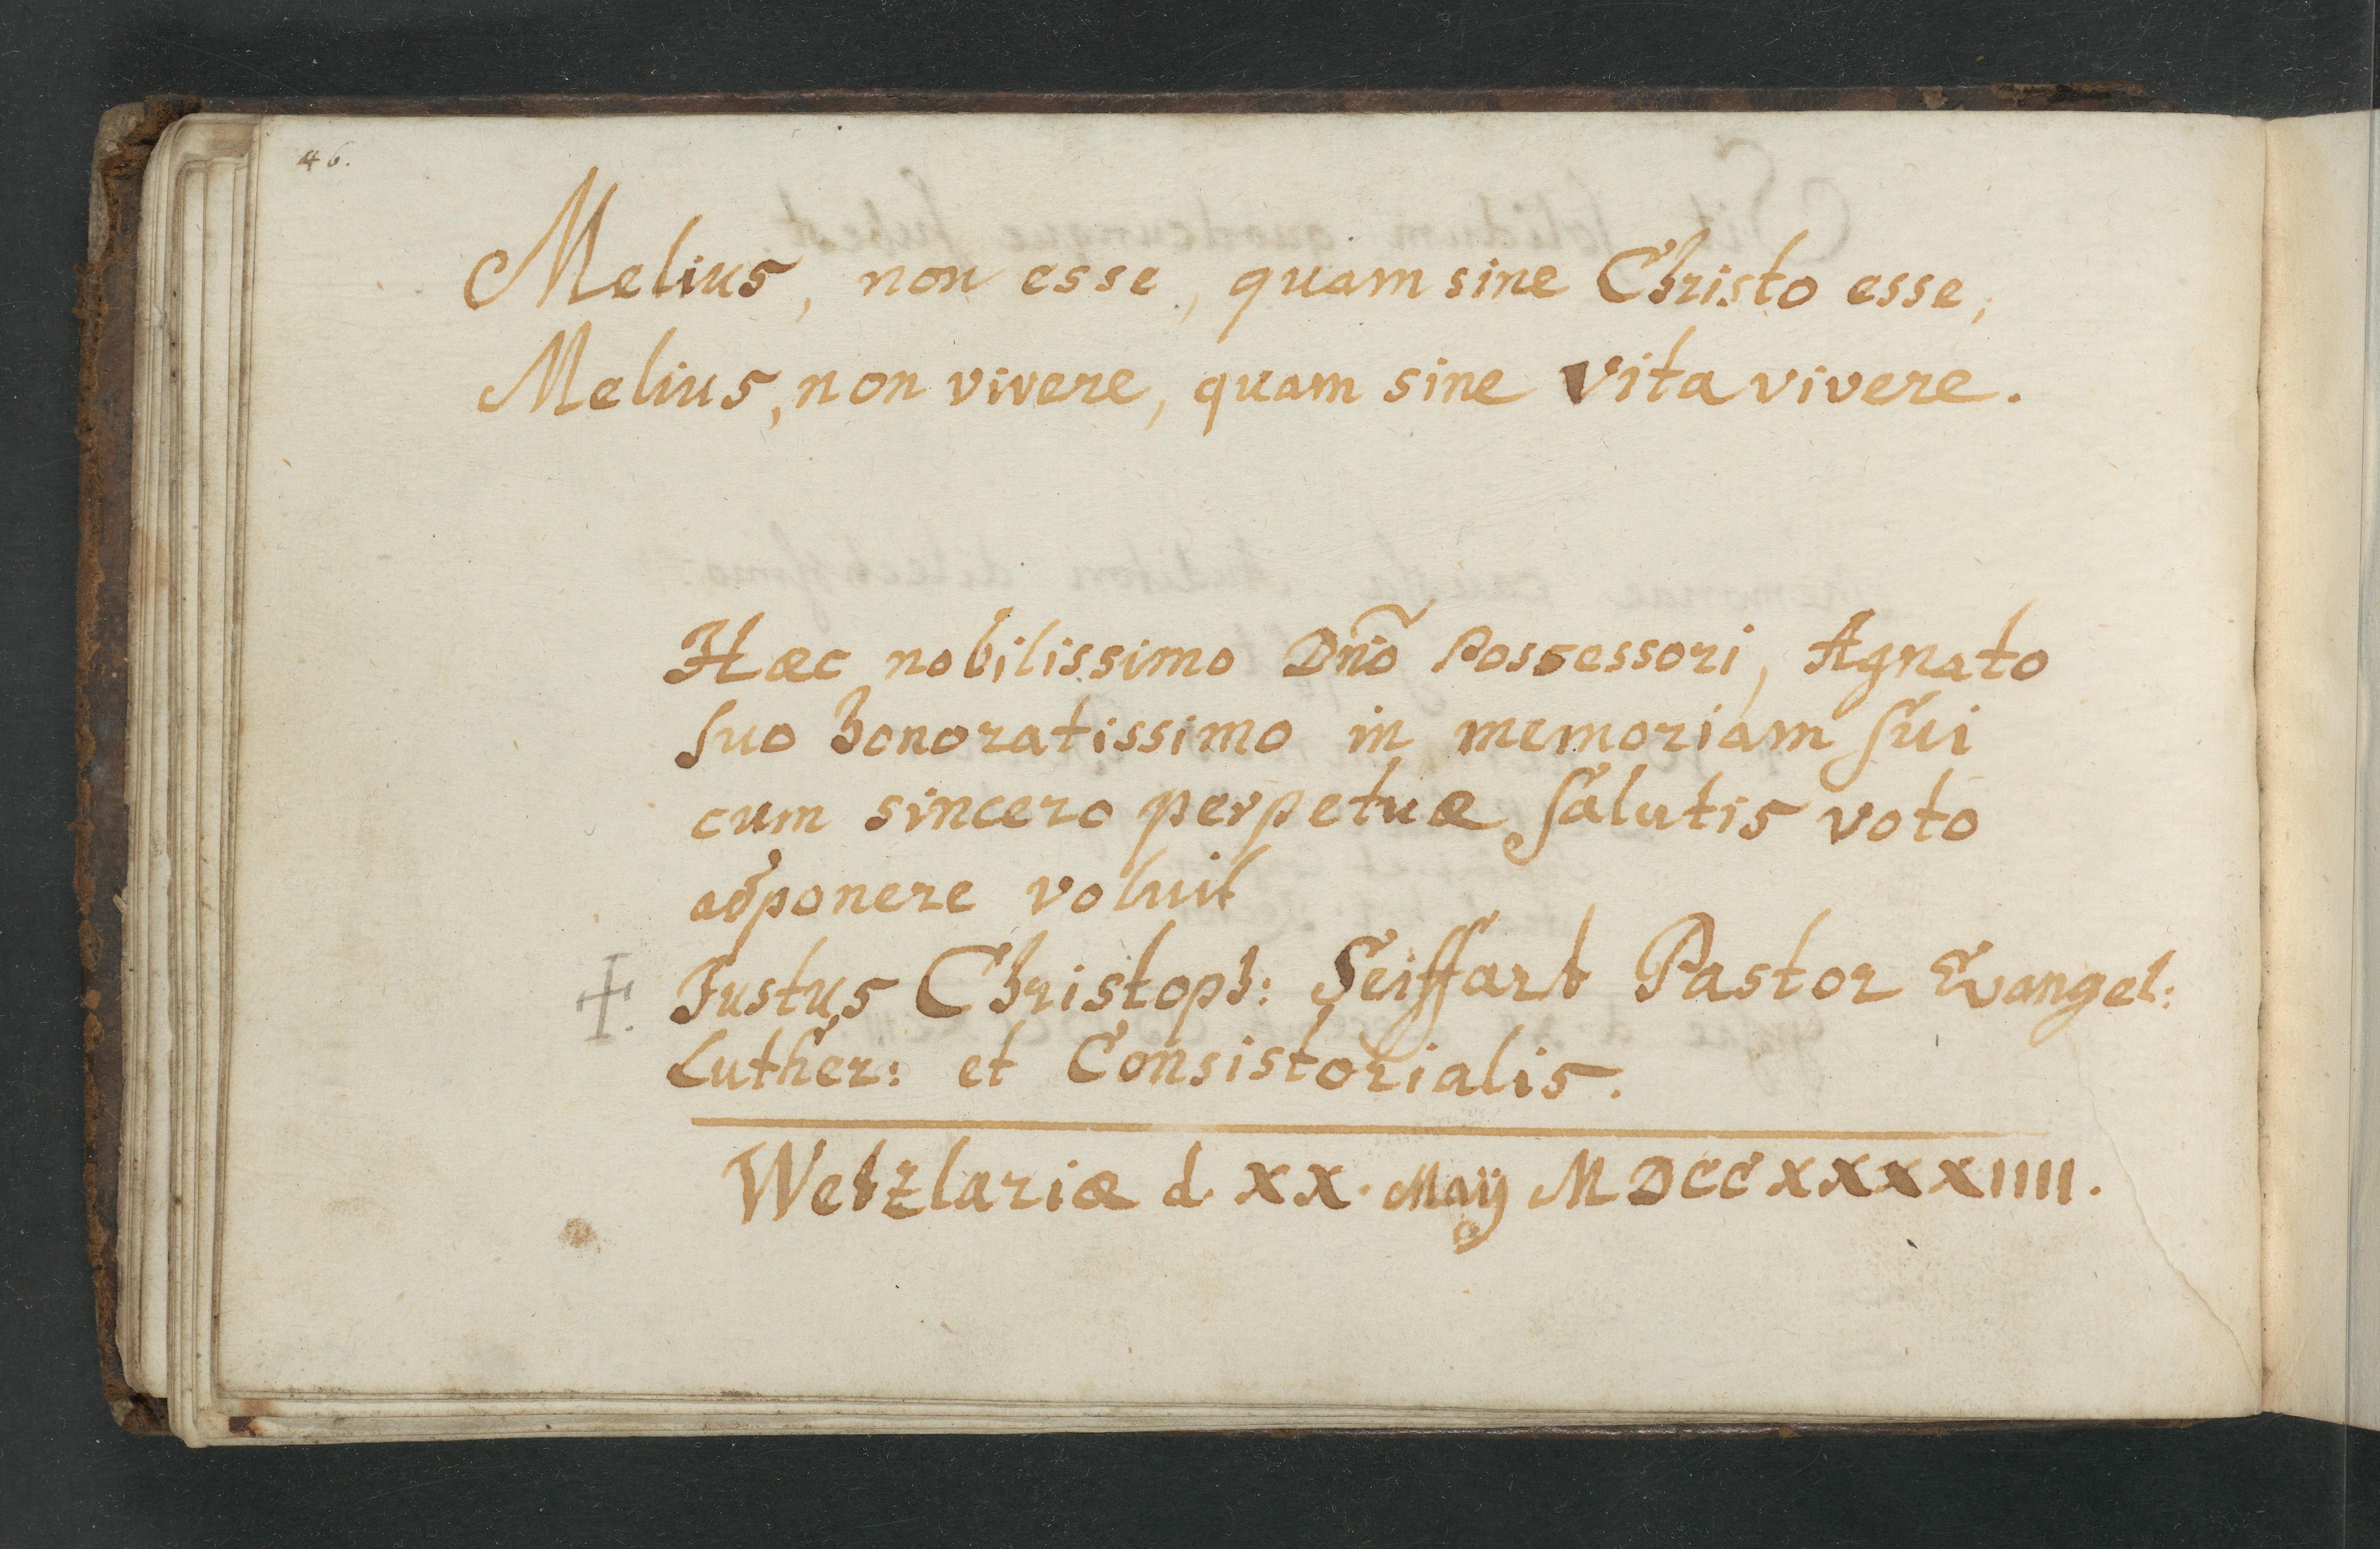 46.
Melius, non esse, quam sine Christo esse,
Melius, non vivere, quam sine Vita vivere.
Hæc nobilissimo Dño Possessori, Agnato
suo honoratissimo in memoriam sui
cum sincero perpetuæ salutis voto
adponere voluit
Justus Christoph: Seiffart Pastor Evangel:
Luther: et Consistorialis.
Wetzlariæ d. XX. Maij MDCCXXXXIIII.